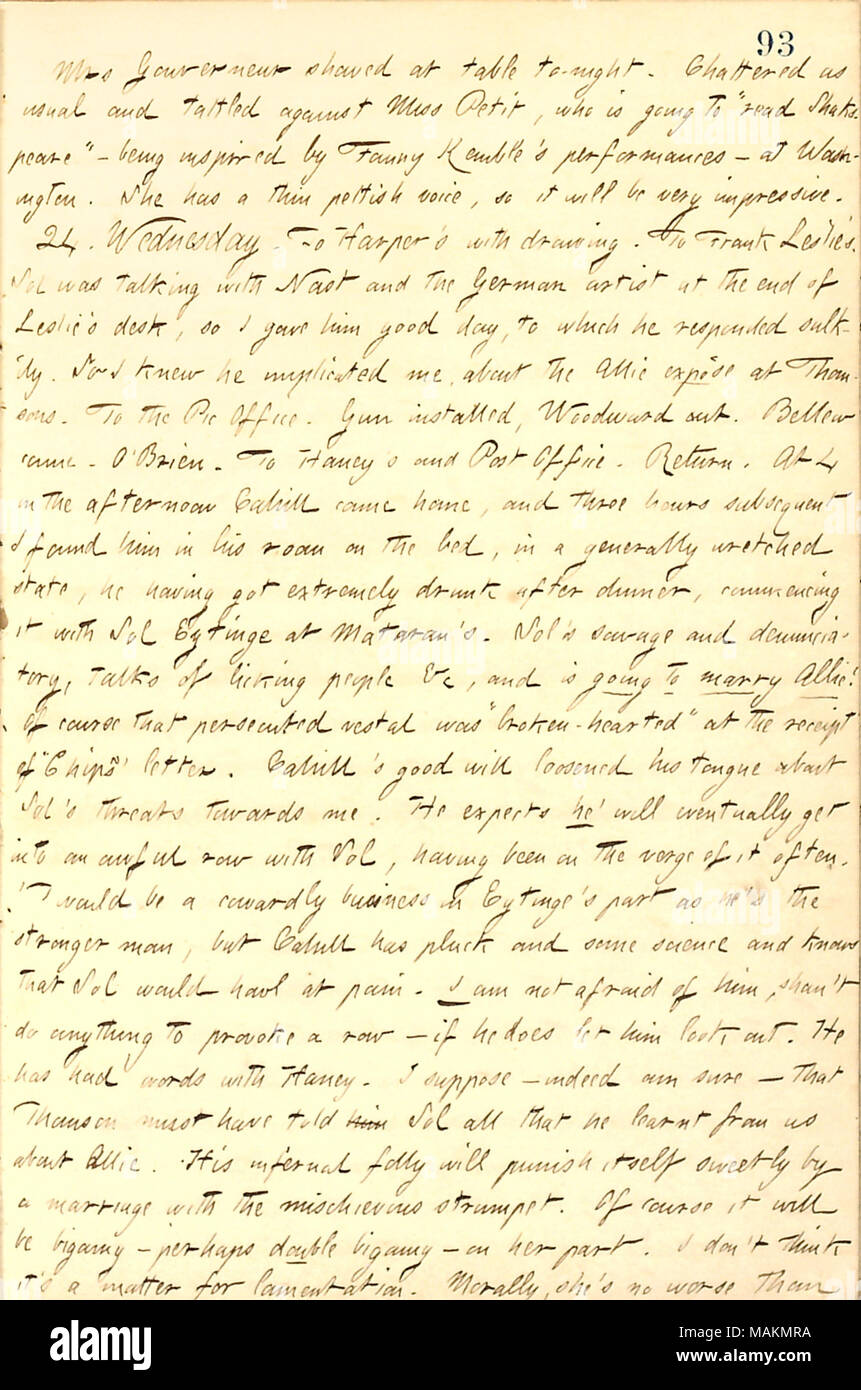 93
Mrs Gouverneur showed at table to-night. Chattered as
usual and tattled against Miss Petit, who is going to "read Shaks-
peare" - being inspired by Fanny Kemble's performances - at Wash-
ington. She has a thin pettish voice, so it will be very impressive.
24. Wednesday. To Harper's with drawing. To Frank Leslie's.
Sol was talking with Nast and the German artist at the end of
Leslie's desk, so I gave him good day, to which he responded sulk-
ily. So I knew he implicated me, about the Allie expose at Thom-
sons. To the Pic Office. Gun installed, Woodward out. Bellew
came. O'Brien. To Haney's and Post Office. Return. At 4
in the afternoon Cahill came home, and three hours subsequent
I found him in his room on the bed, in a generally wretched
state, he having got extremely drunk after dinner, commencing
it with Sol Eytinge at Mataran's. Sol's savage and denuncia-
tory, talks of licking people &c, and is going to marry Allie!
Of course that persecuted vestal was "broken-hearted" at the receipt
of "Chips'" letter. Cahill's good will loosened his tongue about
Sol's threats towards me. He expects he'll eventually get
into an awful row with Sol, having been on the verge of it often.
'T would be a cowardly business on Eytinge's part as he's the
stronger man, but Cahill has pluck and some science and knows
that Sol would howl at pain. I am not afraid of him, shan't
do anything to provoke a row - if he does let him look out. He
has had words with Haney. I suppose - indeed am sure - that
Thomson must have told him Sol all that he learnt from us
about Allie. His infernal folly will punish itself sweetly by
a marriage with the mischievous strumpet. Of course it will
be bigamy - perhaps double bigamy - on her part. I don't think
it's a matter for lamentation. Morally, she's no worse than
alamy
Image ID: MAKMRA
www.alamy.com